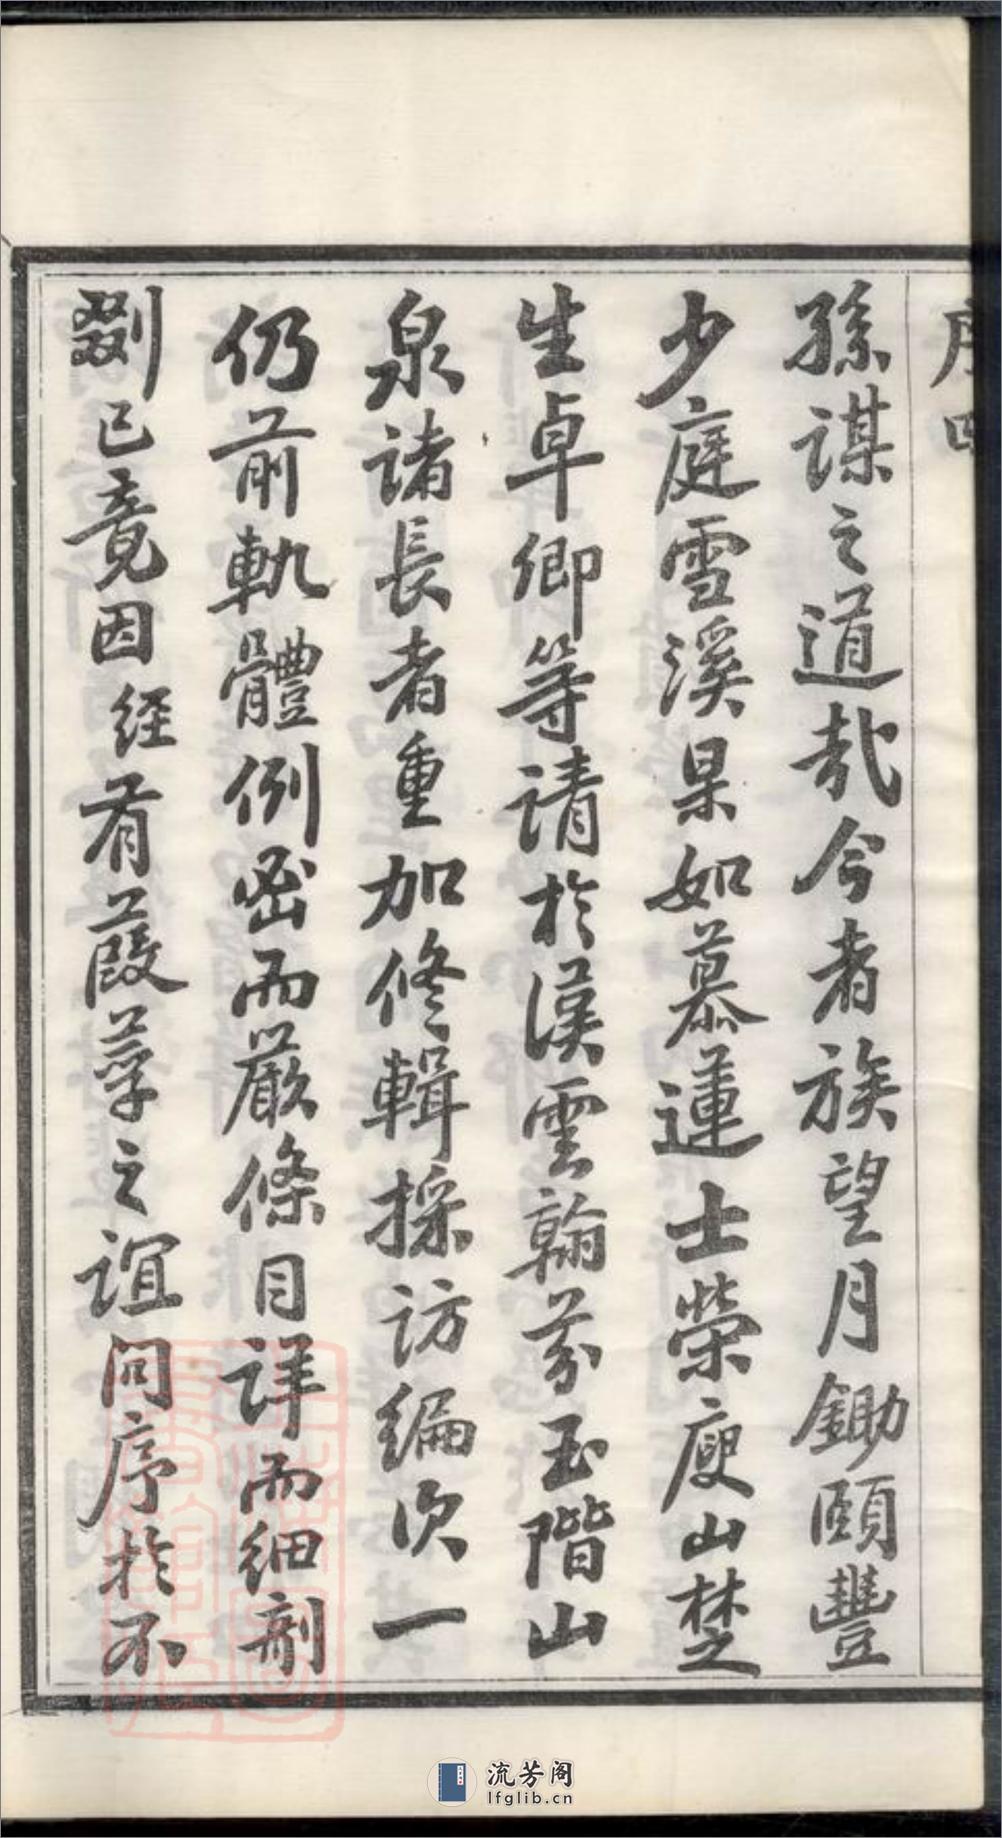 序四
孫謀之道哉今者族望月鋤頤豐
少庭雪溪果如慕蓮士榮庾山楚
生卓卿等請於漢雲翰芬玉階山
泉諸長者重加修輯採訪編次一
仍前軌體例密而嚴條目詳而細剞
劂已竟因經有葭莩之誼問序於不
流芳阁
lfglib.cn